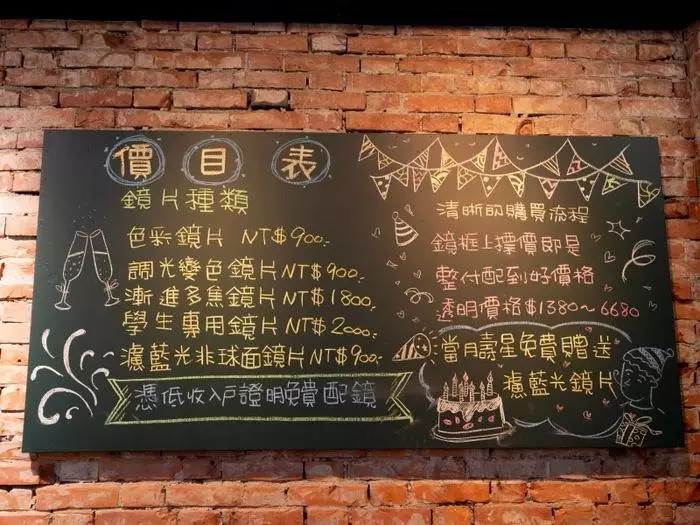 價目表
鏡片種類
色彩鏡片 NT$900.
調光變色鏡片NT$900.
漸進多焦鏡片NT$1800.
學生專用鏡片NT$2000.
濾藍光非球面鏡片NT$900.
憑低收入戶證明免費配鏡
清晰的購買流程
鏡框上標價即是
整付配到好價格
透明價格$1380~6680
當月壽星免費贈送
濾藍光鏡片